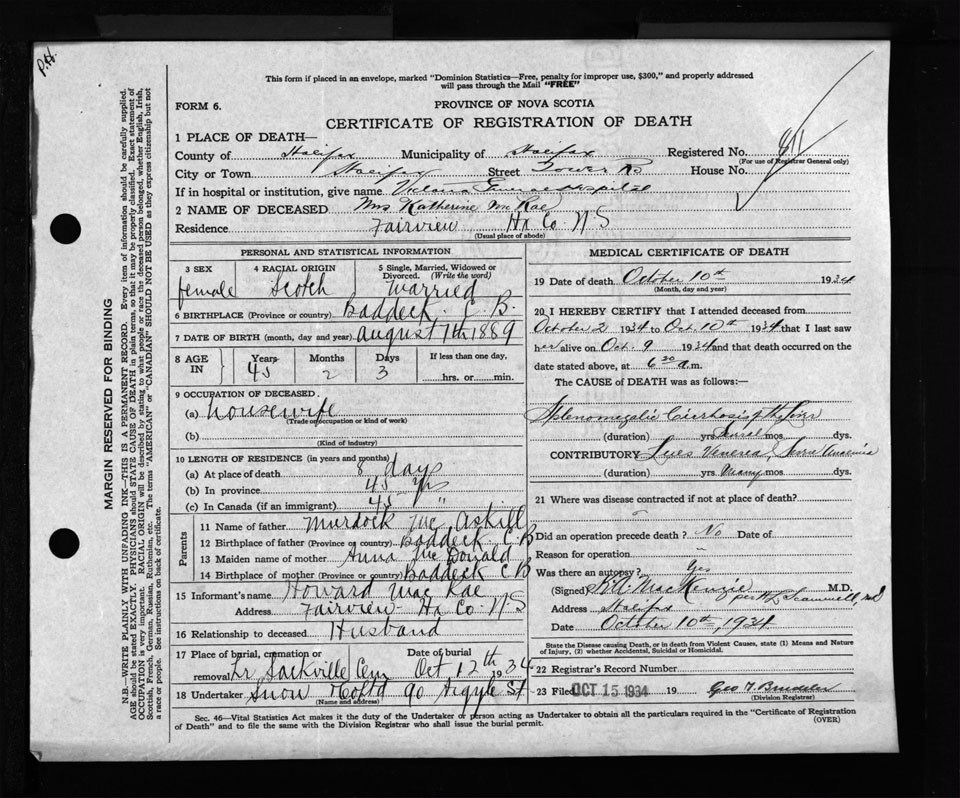 P.H.
This form if placed in an envelope, marked "Dominion Statistics—Free, penalty for improper use, $300," and properly addressed
will pass through the Mail "FREE"
FORM 6.
PROVINCE OF NOVA SCOTIA
CERTIFICATE OF REGISTRATION OF DEATH
1 PLACE OF DEATH—
County of Halifax Municipality of Halifax Registered No. 811
(For use of Registrar General only)
City or Town Halifax Street Tower Rd House No.
If in hospital or institution, give name Victoria General Hospital
2 NAME OF DECEASED Mrs Katherine McRae
Residence Fairview Hx Co N S
(Usual place of abode)
PERSONAL AND STATISTICAL INFORMATION
3 SEX 4 RACIAL ORIGIN 5 Single, Married, Widowed or
Divorced. (Write the word)
female Scotch Married
6 BIRTHPLACE (Province or country) Baddeck C. B.
7 DATE OF BIRTH (month, day and year) August 7th 1889
8 AGE IN Years Months Days If less than one day,
45 2 3 hrs. or min.
9 OCCUPATION OF DECEASED.
(a) housewife
(Trade or occupation or kind of work)
(b)
(Kind of industry)
10 LENGTH OF RESIDENCE (in years and months)
(a) At place of death 8 days
(b) In province 45 yrs
(c) In Canada (if an immigrant) 45 "
Parents
11 Name of father Murdock McAskill
12 Birthplace of father (Province or country) Baddeck C B
13 Maiden name of mother Anna McDonald
14 Birthplace of mother (Province or country) Baddeck C B
15 Informant's name Howard MacRae
Address Fairview - Hx Co. N S
16 Relationship to deceased Husband
17 Place of burial, cremation or Date of burial
removal Lr Sackville Cem Oct 12th 1934
18 Undertaker Snow 90 Argyle St.
(Name and address)
MEDICAL CERTIFICATE OF DEATH
19 Date of death October 10th 1934
(Month, day and year)
20 I HEREBY CERTIFY that I attended deceased from
October 2 1934 to Oct 10th 1934 that I last saw
her alive on Oct. 9 1934 and that death occurred on the
date stated above, at 6 30 a.m.
The CAUSE OF DEATH was as follows:—
Splenomegalic Cirrhosis of the Liver
(duration) yrs. mos. dys.
CONTRIBUTORY Lues Venerea, Anaemia
(duration) yrs. Many mos. dys.
21 Where was disease contracted if not at place of death?
Did an operation precede death? No Date of
Reason for operation "
Was there an autopsy? Yes
(Signed) MacKenzie M.D.
per
Address Halifax
Date October 10th, 1934
State the Disease causing Death, or in death from Violent Causes, state (1) Means and Nature
of Injury, (2) whether Accidental, Suicidal or Homicidal.
22 Registrar's Record Number
23 Filed OCT 15 1934 19
(Division Registrar)
Sec. 46—Vital Statistics Act makes it the duty of the Undertaker or person acting as Undertaker to obtain all the particulars required in the "Certificate of Registration
of Death" and to file the same with the Division Registrar who shall issue the burial permit. (OVER)
MARGIN RESERVED FOR BINDING
N.B.—WRITE PLAINLY WITH UNFADING INK—THIS IS A PERMANENT RECORD. Every item of information should be carefully supplied.
AGE should be stated EXACTLY. PHYSICIANS should STATE CAUSE OF DEATH in plain terms, so that it may be properly classified. Exact statement of
OCCUPATION is very important. RACIAL ORIGIN will be described by stating to what people or race the deceased person belonged, whether English, Irish,
Scottish, French, German, Russian, Ruthenian, etc. The terms "AMERICAN" or "CANADIAN" SHOULD NOT BE USED as they express citizenship but not
a race or people. See instructions on back of certificate.